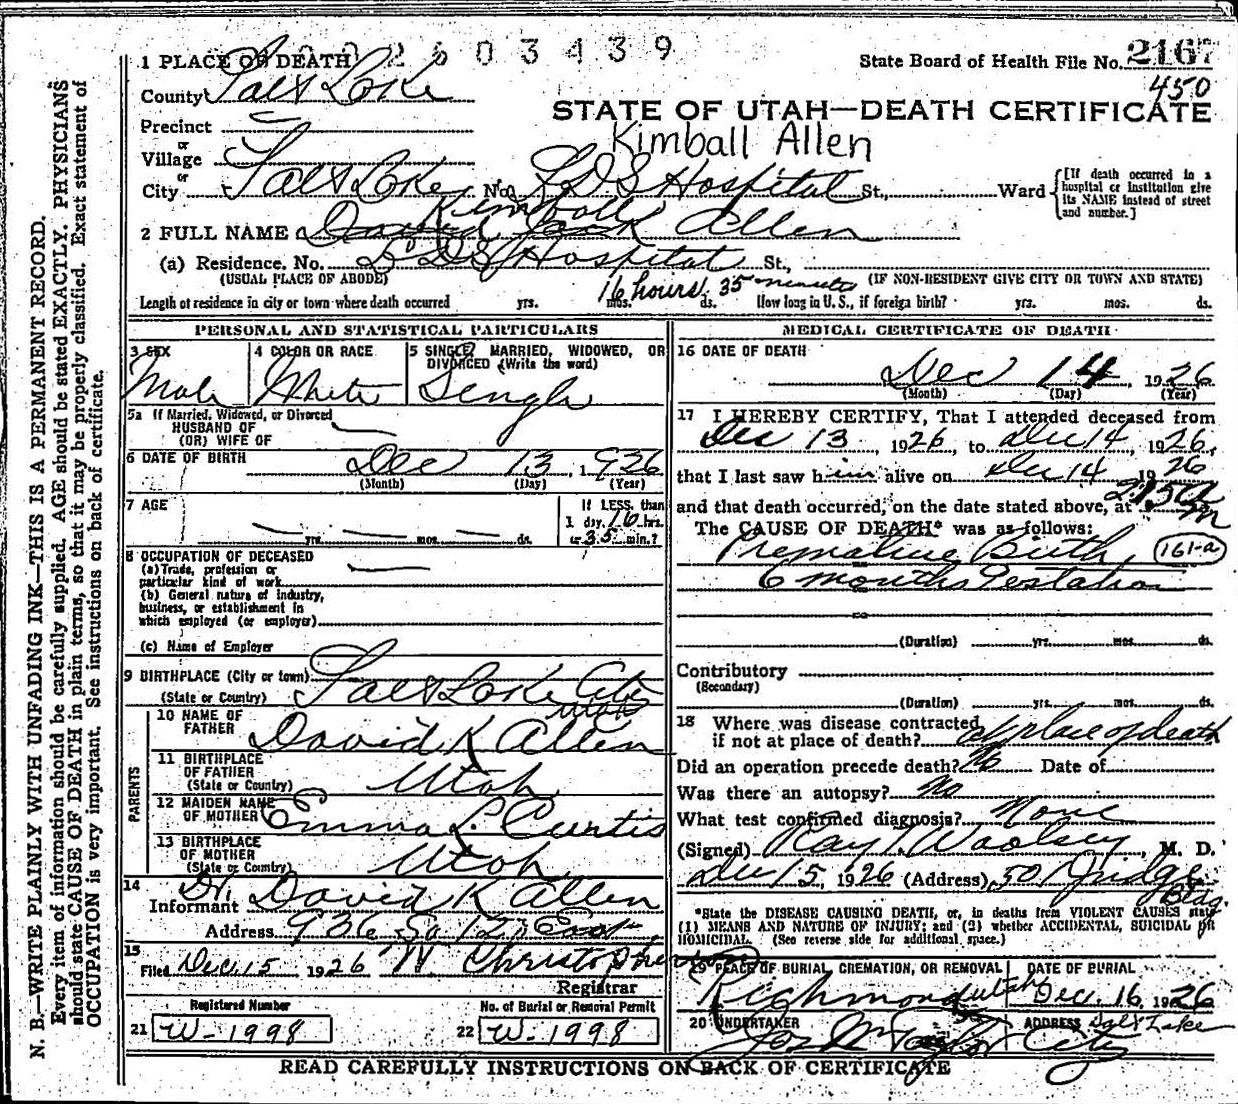 2603439
1 PLACE OF DEATH
State Board of Health File No. 2167
450
County Salt Lake
STATE OF UTAH—DEATH CERTIFICATE
Precinct
Kimball Allen
or
Village
or
City Salt Lake No. LDS Hospital St., Ward
[If death occurred in a hospital or institution give its NAME instead of street and number.]
Kimball
2 FULL NAME David Allen
(a) Residence. No. LDS Hospital St.,
(USUAL PLACE OF ABODE) (IF NON-RESIDENT GIVE CITY OR TOWN AND STATE)
16 hours 35 minutes
Length of residence in city or town where death occurred yrs. mos. ds. How long in U. S., if foreign birth? yrs. mos. ds.
PERSONAL AND STATISTICAL PARTICULARS
3 SEX 4 COLOR OR RACE 5 SINGLE, MARRIED, WIDOWED, OR DIVORCED (Write the word)
Male White Single
5a If Married, Widowed, or Divorced
HUSBAND OF
(OR) WIFE OF
6 DATE OF BIRTH Dec 13 1926
(Month) (Day) (Year)
7 AGE yrs. mos. ds.
If LESS than
1 day, 16 hrs.
or 35 min.?
8 OCCUPATION OF DECEASED
(a) Trade, profession or
particular kind of work
(b) General nature of industry,
business, or establishment in
which employed (or employer)
(c) Name of Employer
9 BIRTHPLACE (City or town)
(State or Country) Salt Lake City
Utah
PARENTS
10 NAME OF
FATHER David K Allen
11 BIRTHPLACE
OF FATHER
(State or Country) Utah
12 MAIDEN NAME
OF MOTHER Emma L Curtis
13 BIRTHPLACE
OF MOTHER
(State or Country) Utah
14
Informant Dr. David K Allen
Address 936 So 12" East
15
Filed Dec. 15 1926 W Christopherson
Registrar
Registered Number No. of Burial or Removal Permit
21 W-1998 22 W-1998
MEDICAL CERTIFICATE OF DEATH
16 DATE OF DEATH
Dec 14, 1926
(Month) (Day) (Year)
17 I HEREBY CERTIFY, That I attended deceased from
Dec 13, 1926, to Dec 14, 1926,
that I last saw him alive on Dec 14 1926
and that death occurred, on the date stated above, at 2:15 a m
The CAUSE OF DEATH* was as follows:
Premature Birth 161-a
6 months Gestation
(Duration) yrs. mos. ds.
Contributory
(Secondary)
(Duration) yrs. mos. ds.
18 Where was disease contracted
if not at place of death? at place of death
Did an operation precede death? No Date of
Was there an autopsy? No
What test confirmed diagnosis? None
(Signed) Ray T. Woolsey, M. D.
Dec 15, 1926 (Address) 501 Judge
Bldg.
*State the DISEASE CAUSING DEATH, or, in deaths from VIOLENT CAUSES state
(1) MEANS AND NATURE OF INJURY; and (2) whether ACCIDENTAL, SUICIDAL or
HOMICIDAL. (See reverse side for additional space.)
19 PLACE OF BURIAL, CREMATION, OR REMOVAL DATE OF BURIAL
Richmond Utah Dec. 16, 1926
20 UNDERTAKER ADDRESS Salt Lake
Jos Wm Taylor City
READ CAREFULLY INSTRUCTIONS ON BACK OF CERTIFICATE
N. B.—WRITE PLAINLY WITH UNFADING INK—THIS IS A PERMANENT RECORD.
Every item of information should be carefully supplied. AGE should be stated EXACTLY. PHYSICIANS
should state CAUSE OF DEATH in plain terms, so that it may be properly classified. Exact statement of
OCCUPATION is very important. See instructions on back of certificate.